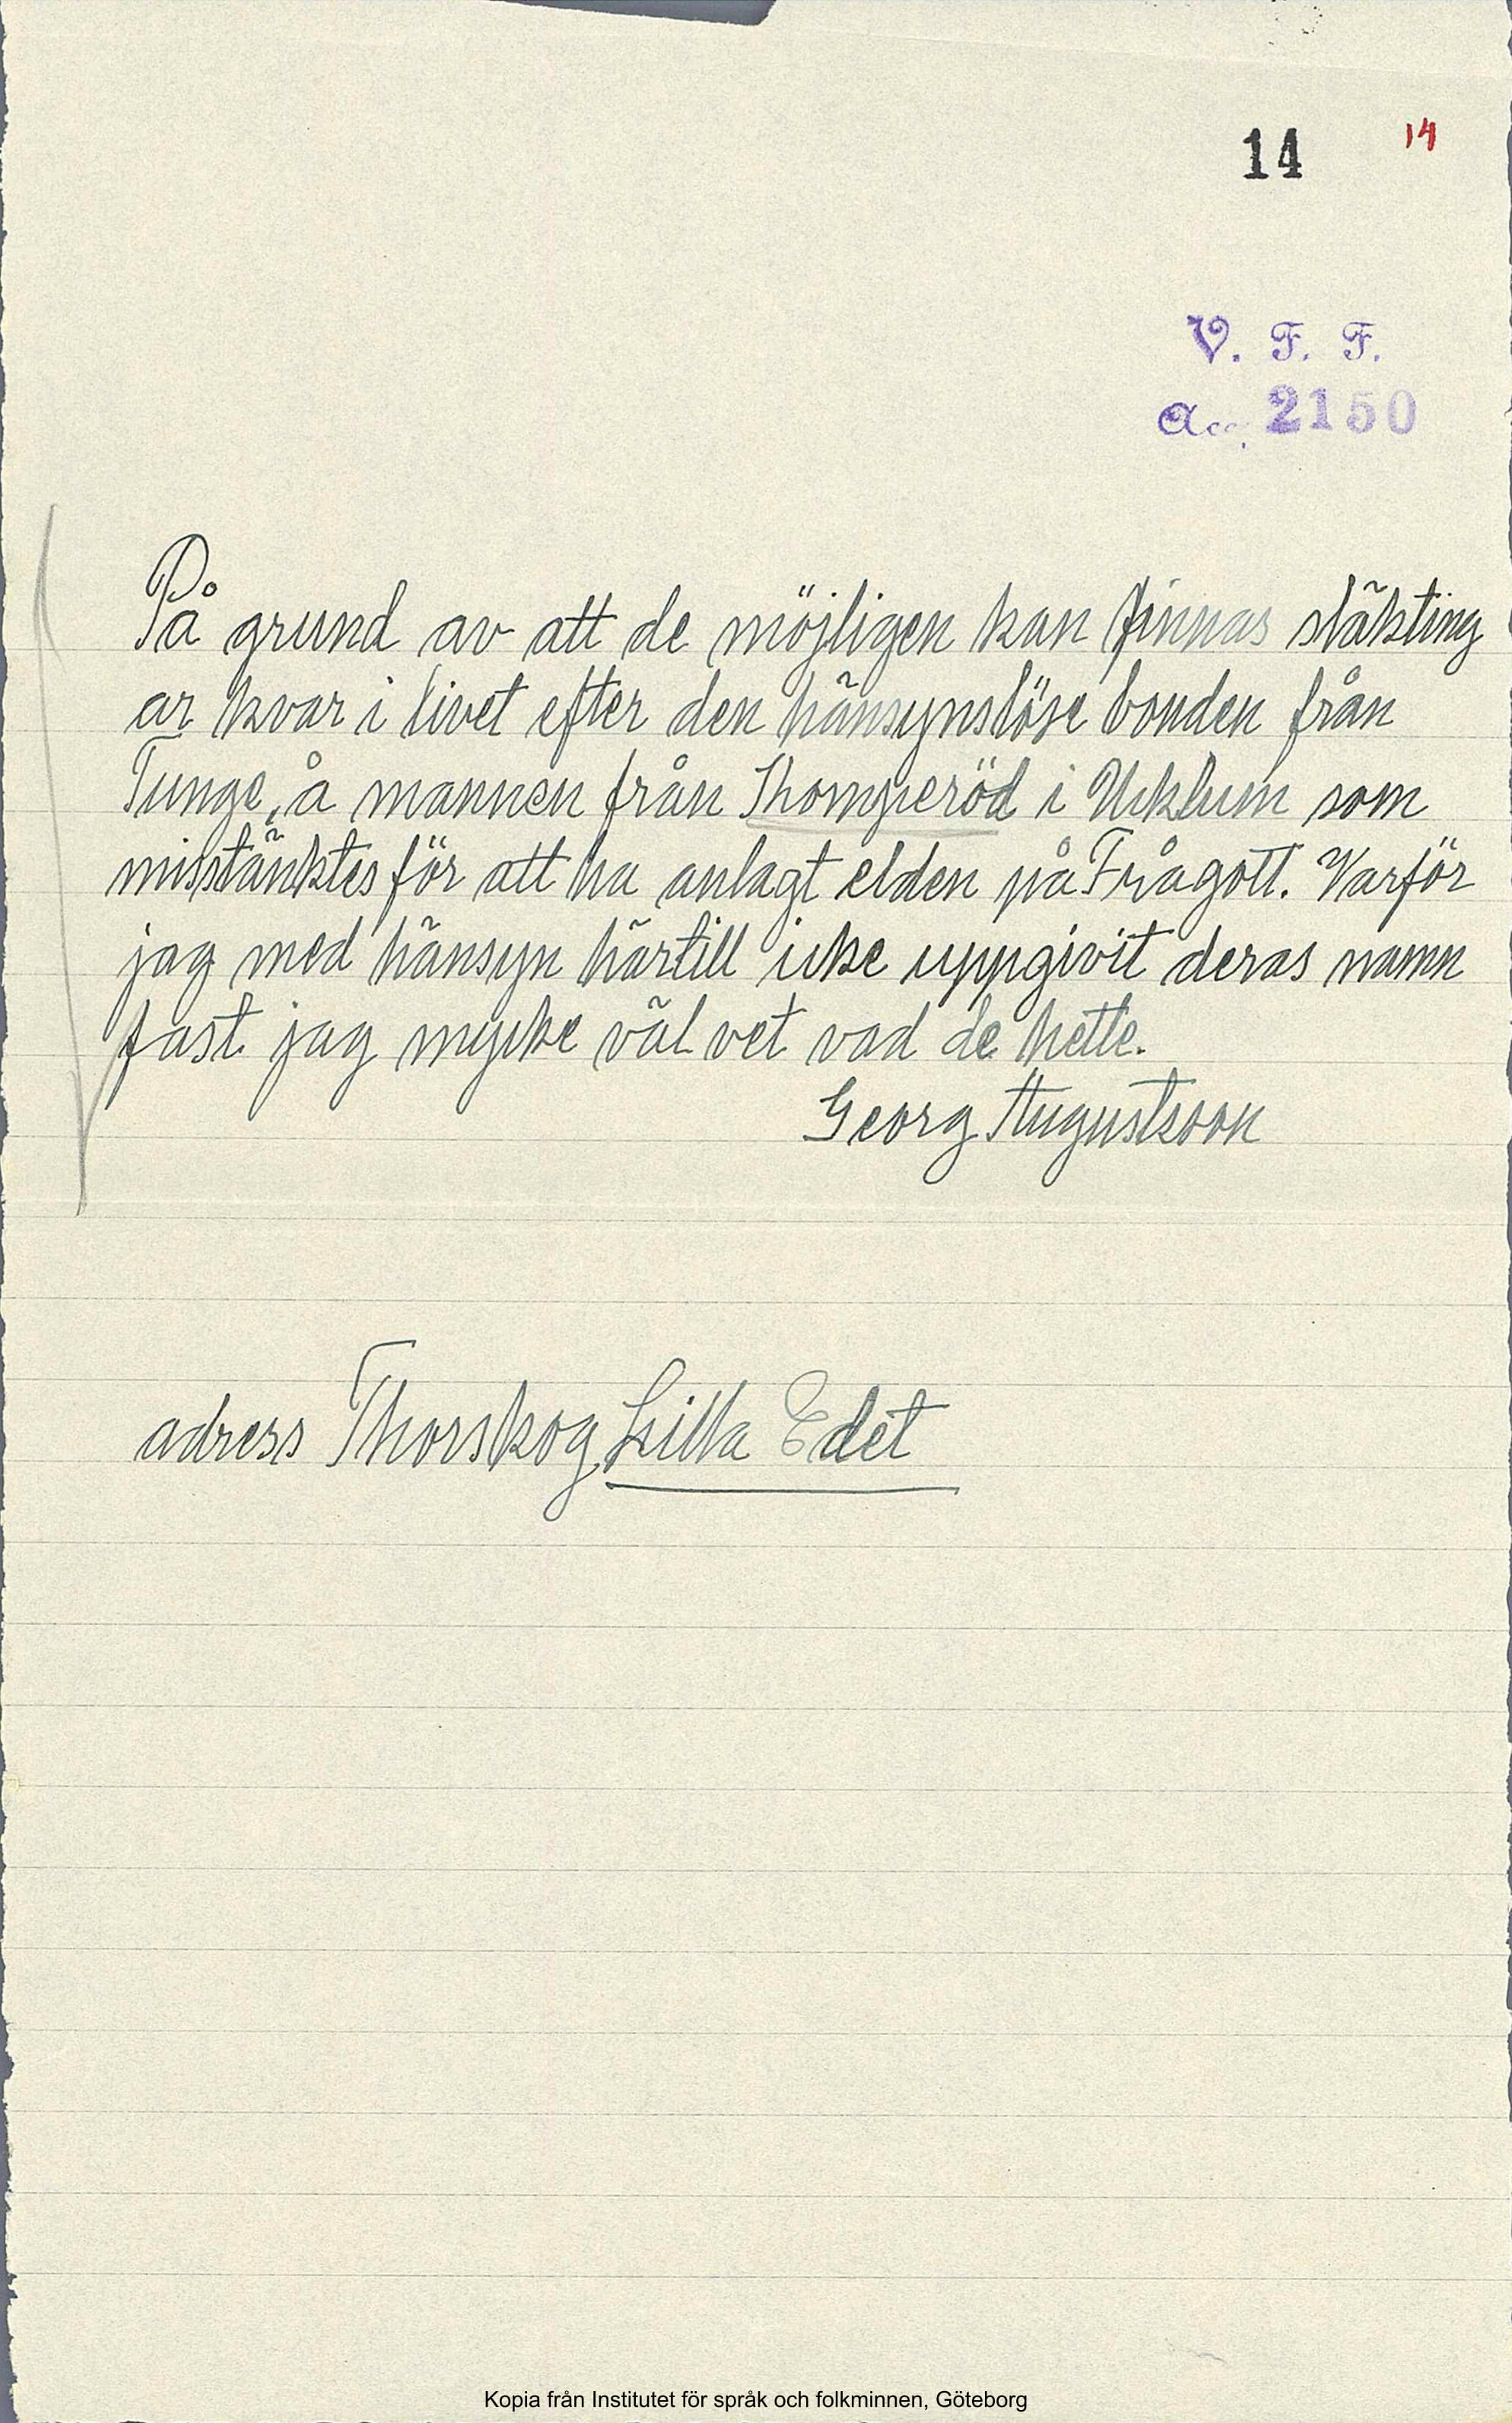 14 14
V. F. F.
Acc. 2150
På grund av att de möjligen kan finnas släkting
ar kvar i livet efter den hänsynslöse bonden från
Tunge, å mannen från Thomperöd i Ucklum som
misstänktes för att ha anlagt elden på Frågott. Varför
jag med hänsyn härtill icke uppgivit deras namn
fast jag mycke väl vet vad de hette.
Georg Augustsson
adress Thorskog Lilla Edet
Kopia från Institutet för språk och folkminnen, Göteborg